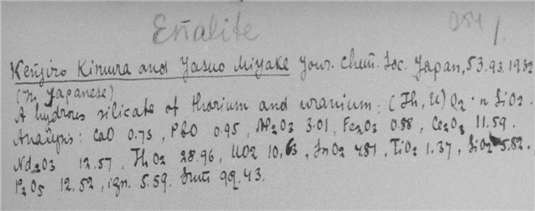 Enalite
254 1.
Kenjiro Kimura and Yasuo Miyake Jour. Chem. Soc. Japan, 53.93.1932
(in Japanese)
A hydrous silicate of thorium and uranium: (Th, U)O2 · n SiO2.
Analysis: CaO 0.73, PbO 0.95, Al2O3 3.01, Fe2O3 0.88, Ce2O3 11.59.
Nd2O3 12.57, ThO2 28.96, UO2 10,63, SnO2 4.81, TiO2 1.37, SiO2 5.82.,
P2O5 12,52, ign. 5.59. Sum 99.43.